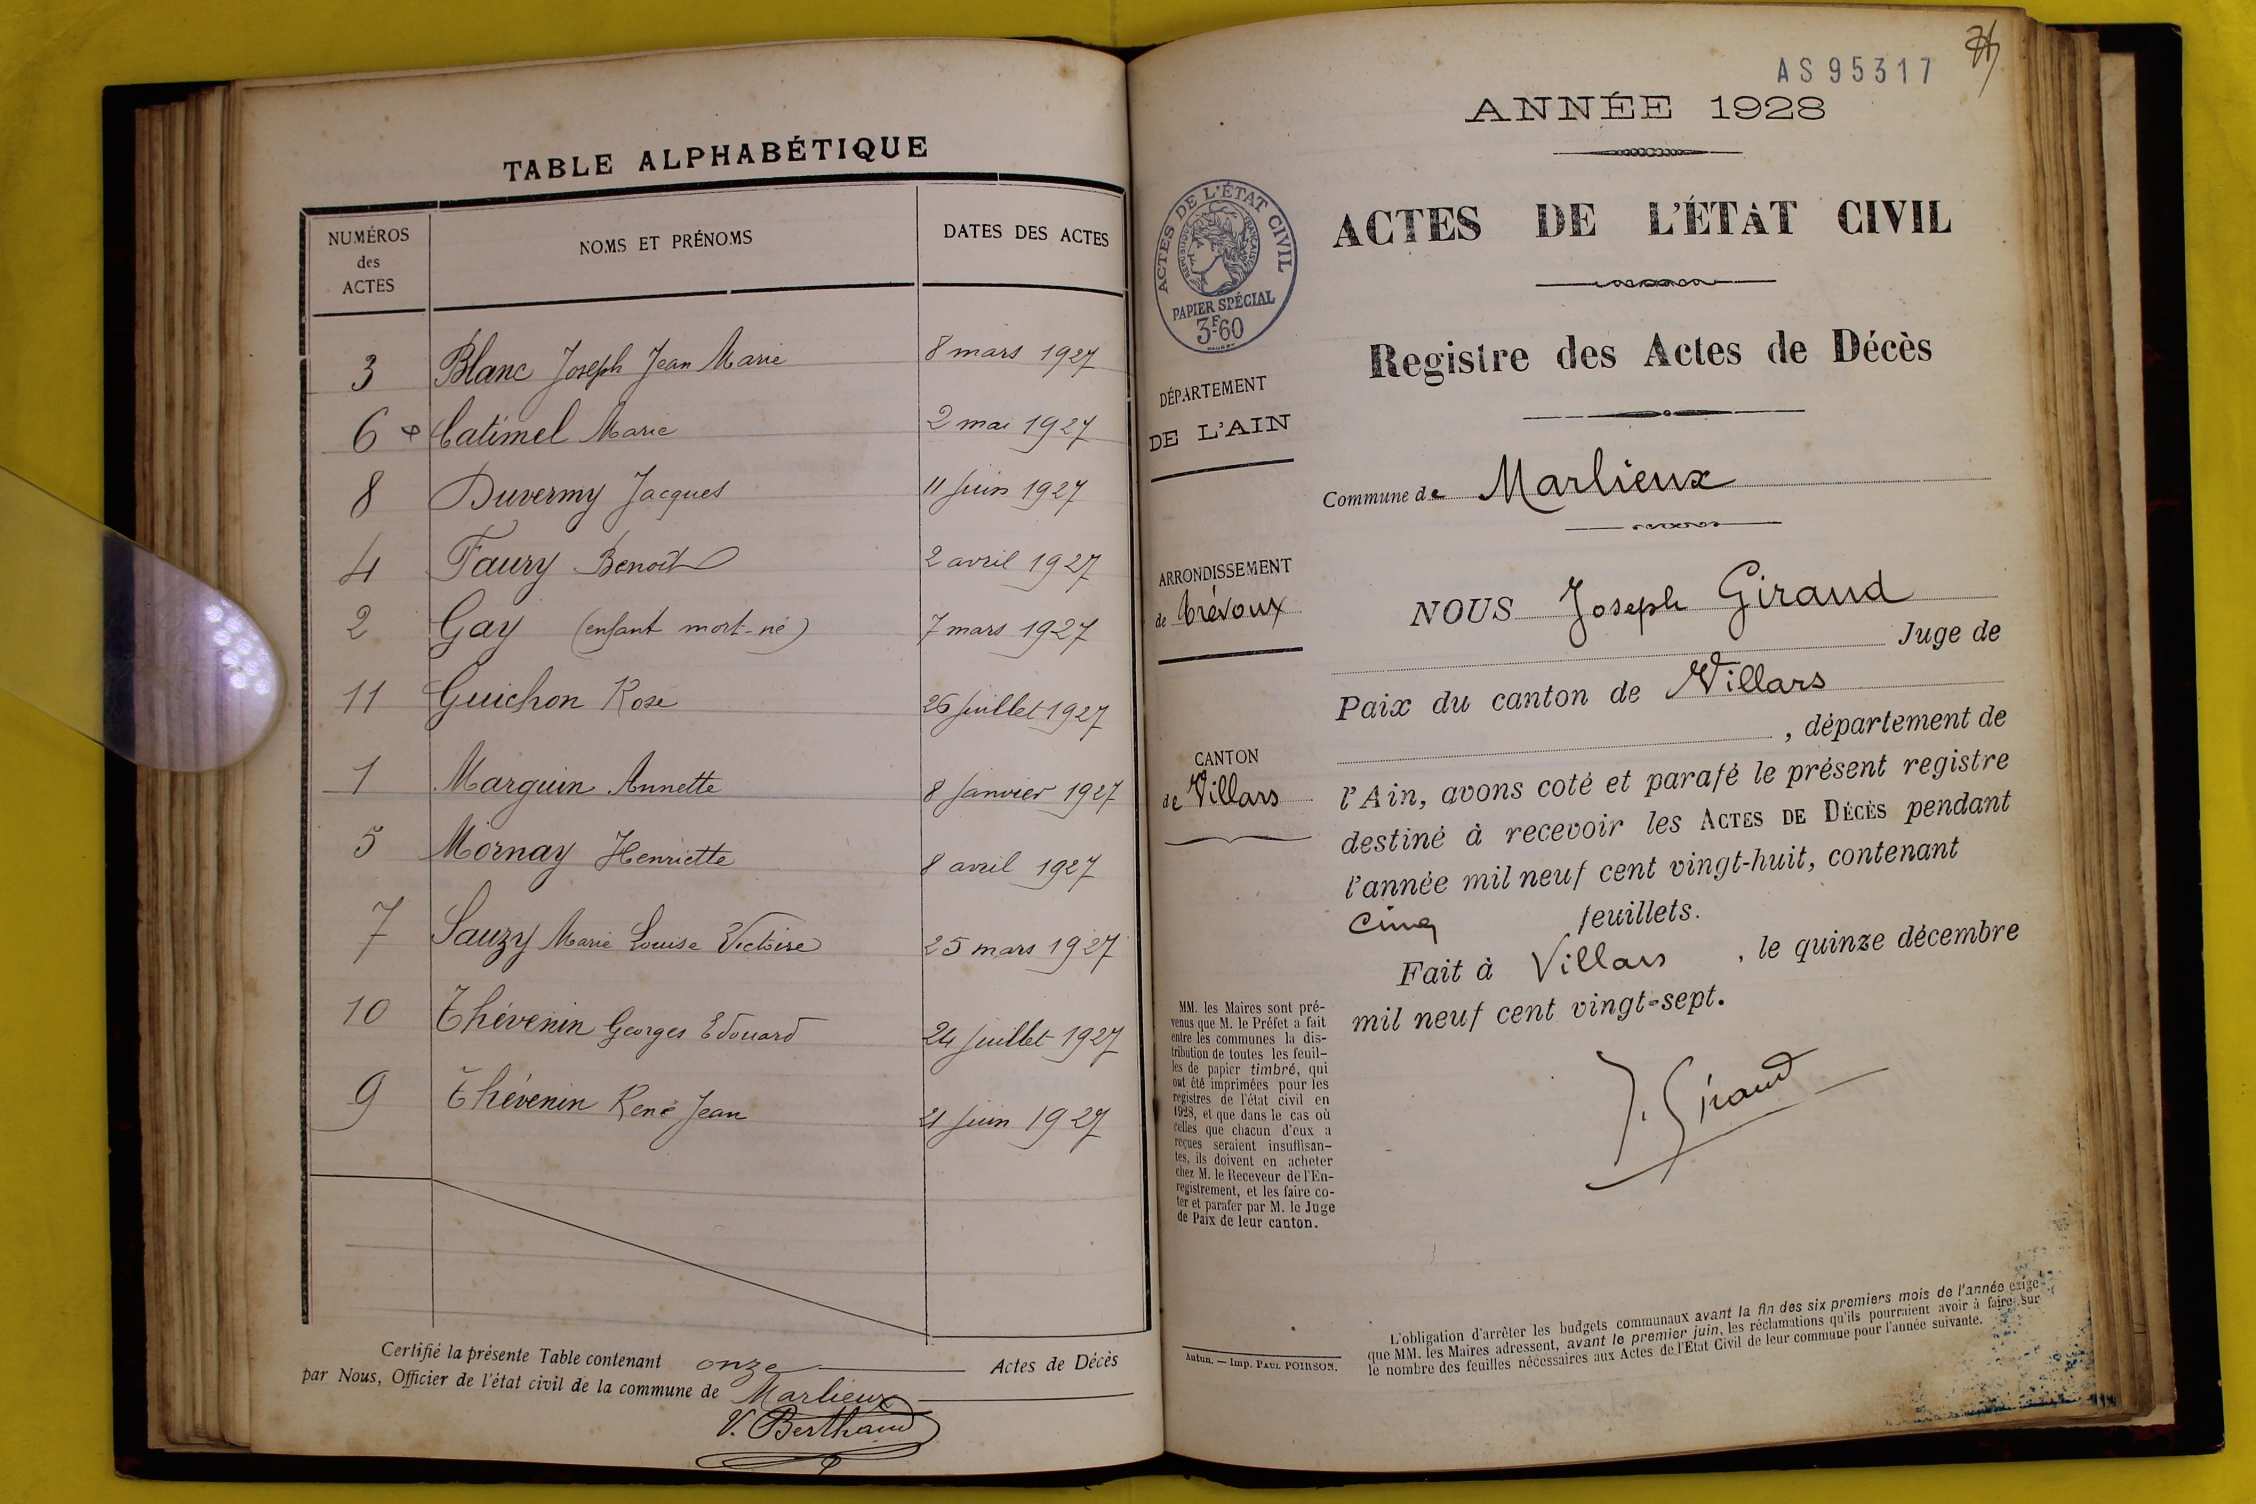 TABLE ALPHABÉTIQUE
NUMÉROS
des
ACTES
NOMS ET PRÉNOMS
DATES DES ACTES
3 Blanc Joseph Jean Marie 8 mars 1927
6 Catimel Marie 2 mai 1927
8 Duvermy Jacques 11 juin 1927
4 Faury Benoit 2 avril 1927
2 Gay (enfant mort-né) 7 mars 1927
11 Guichon Rose 26 juillet 1927
1 Marguin Annette 8 janvier 1927
5 Mornay Henriette 8 avril 1927
7 Sauzy Marie Louise Victoire 25 mars 1927
10 Thévenin Georges Edouard 24 juillet 1927
9 Thévenin René Jean 21 juin 1927
Certifié la présente Table contenant onze Actes de Décès
par Nous, Officier de l'état civil de la commune de Marlieux
V. Berthaud
AS95317
ANNÉE 1928
ACTES DE L'ÉTAT CIVIL
Registre des Actes de Décès
ACTES DE L'ÉTAT CIVIL
RÉPUBLIQUE FRANÇAISE
PAPIER SPÉCIAL
3F60
DÉPARTEMENT
DE L'AIN
ARRONDISSEMENT
de Trévoux
CANTON
de Villars
MM. les Maires sont pré-
venus que M. le Préfet a fait
entre les communes la dis-
tribution de toutes les feuil-
les de papier timbré, qui
ont été imprimées pour les
registres de l'état civil en
1928, et que dans le cas où
celles que chacun d'eux a
reçues seraient insuffisan-
tes, ils doivent en acheter
chez M. le Receveur de l'En-
registrement, et les faire co-
ter et parafer par M. le Juge
de Paix de leur canton.
Autun. — Imp. PAUL POIRSON.
Commune de Marlieux
NOUS Joseph Giraud
Juge de
Paix du canton de Villars
, département de
l'Ain, avons coté et parafé le présent registre
destiné à recevoir les ACTES DE DÉCÈS pendant
l'année mil neuf cent vingt-huit, contenant
Cinq feuillets.
Fait à Villars , le quinze décembre
mil neuf cent vingt-sept.
J. Giraud
L'obligation d'arrêter les budgets communaux avant la fin des six premiers mois de l'année exige
que MM. les Maires adressent, avant le premier juin, les réclamations qu'ils pourraient avoir à faire sur
le nombre des feuilles nécessaires aux Actes de l'Etat Civil de leur commune pour l'année suivante.